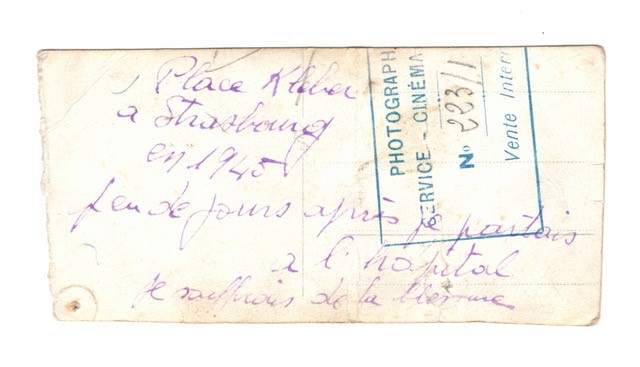 Place Kléber
a Strasbourg
en 1945
peu de jours après je partais
a l'hopital
je souffrais de la blessure
PHOTOGRAPH
SERVICE - CINÉMA
N° 223/1
Vente Interr